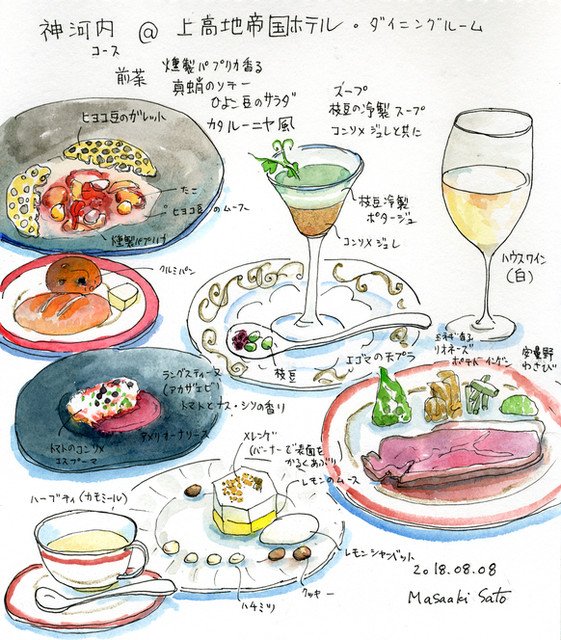 神河内 @ 上高地帝国ホテル・ダイニングルーム
コース
前菜
燻製パプリカ香る
真蛸のソテー
ひよこ豆のサラダ
カタルーニャ風
ヒヨコ豆のガレット
たこ
ヒヨコ豆のムース
燻製パプリカ
スープ
枝豆の冷製スープ
コンソメジュレと共に
枝豆冷製
ポタージュ
コンソメジュレ
枝豆
ハウスワイン
(白)
クルミパン
ラングスティーヌ
(アカザエビ)
トマトとナス・シソの香り
トマトのコンソメ
エスプーマ
アメリケーヌソース
エゴマの天プラ
リオネーズ
ポテト インゲン
安曇野
わさび
メレンゲ
(バーナーで表面を
かるくあぶり)
レモンのムース
レモンシャーベット
クッキー
ハチミツ
ハーブティ(カモミール)
2018.08.08
Masaaki Sato